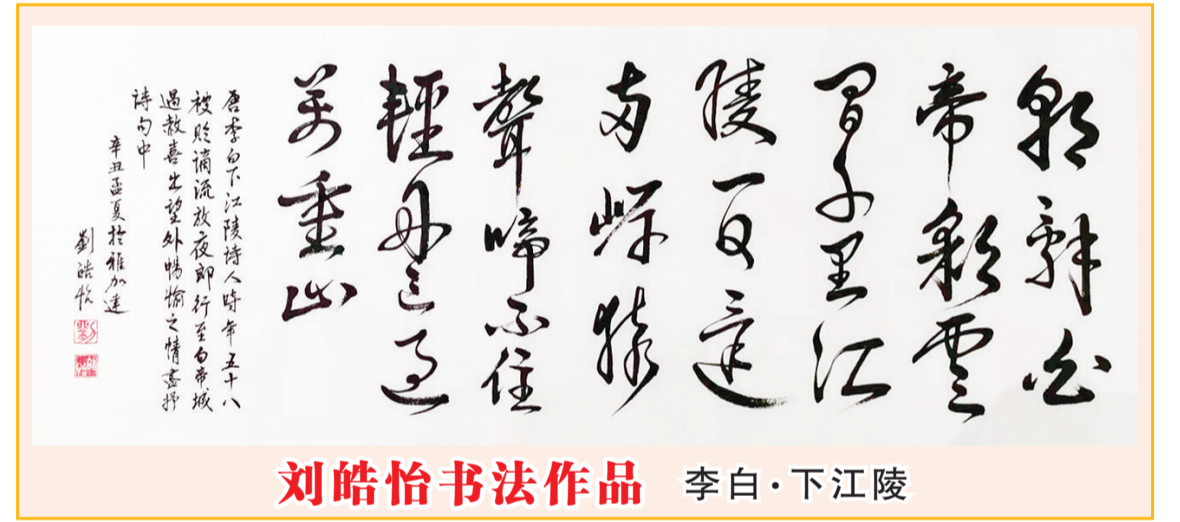 朝辭白
帝彩雲
間千里江
陵一日還
兩岸猿
聲啼不住
輕舟已過
萬重山
唐李白下江陵詩人時年五十八
被貶謫流放夜郎行至白帝城
遇赦喜出望外暢愉之情盡抒
詩句中
辛丑孟夏於雅加達
劉皓怡
刘皓怡书法作品 李白·下江陵